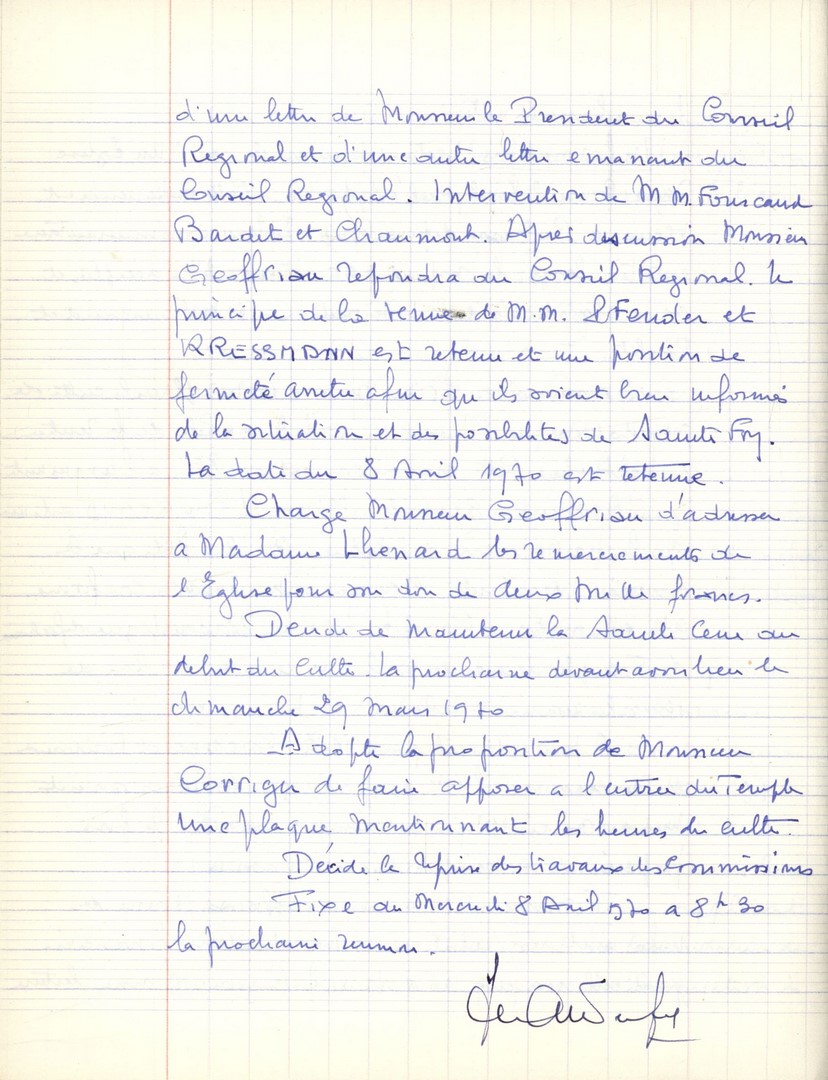 d'une lettre de Monsieur le President du Conseil
Regional et d'une autre lettre emanant du
Conseil Regional. Intervention de M M. Fourcaud
Bardet et Chaumont. Après discussion Monsieur
Geoffriau repondra au Conseil Regional. Le
principe de la venue de M.M. Pfender et
KRESSMANN est retenu et une position de
fermeté arretée afin qu ils soient bien informés
de la situation et des possibilités de Sainte Foy.
La date du 8 Avril 1970 est retenue.
Charge Monsieur Geoffriau d'adresser
a Madame Lhenard les remerciements de
l Eglise pour son don de deux mille francs.
Decide de maintenir la Sainte Cene au
debut du Culte. La prochaine devant avoir lieu le
dimanche 29 Mars 1970
Adopte la proposition de Monsieur
Corriger de faire apposer a l'entrée du Temple
une plaque mentionnant les heures du culte.
Décide la reprise des travaux des Commissions
Fixe au Mercredi 8 Avril 1970 a 8h30
la prochaine reunion.